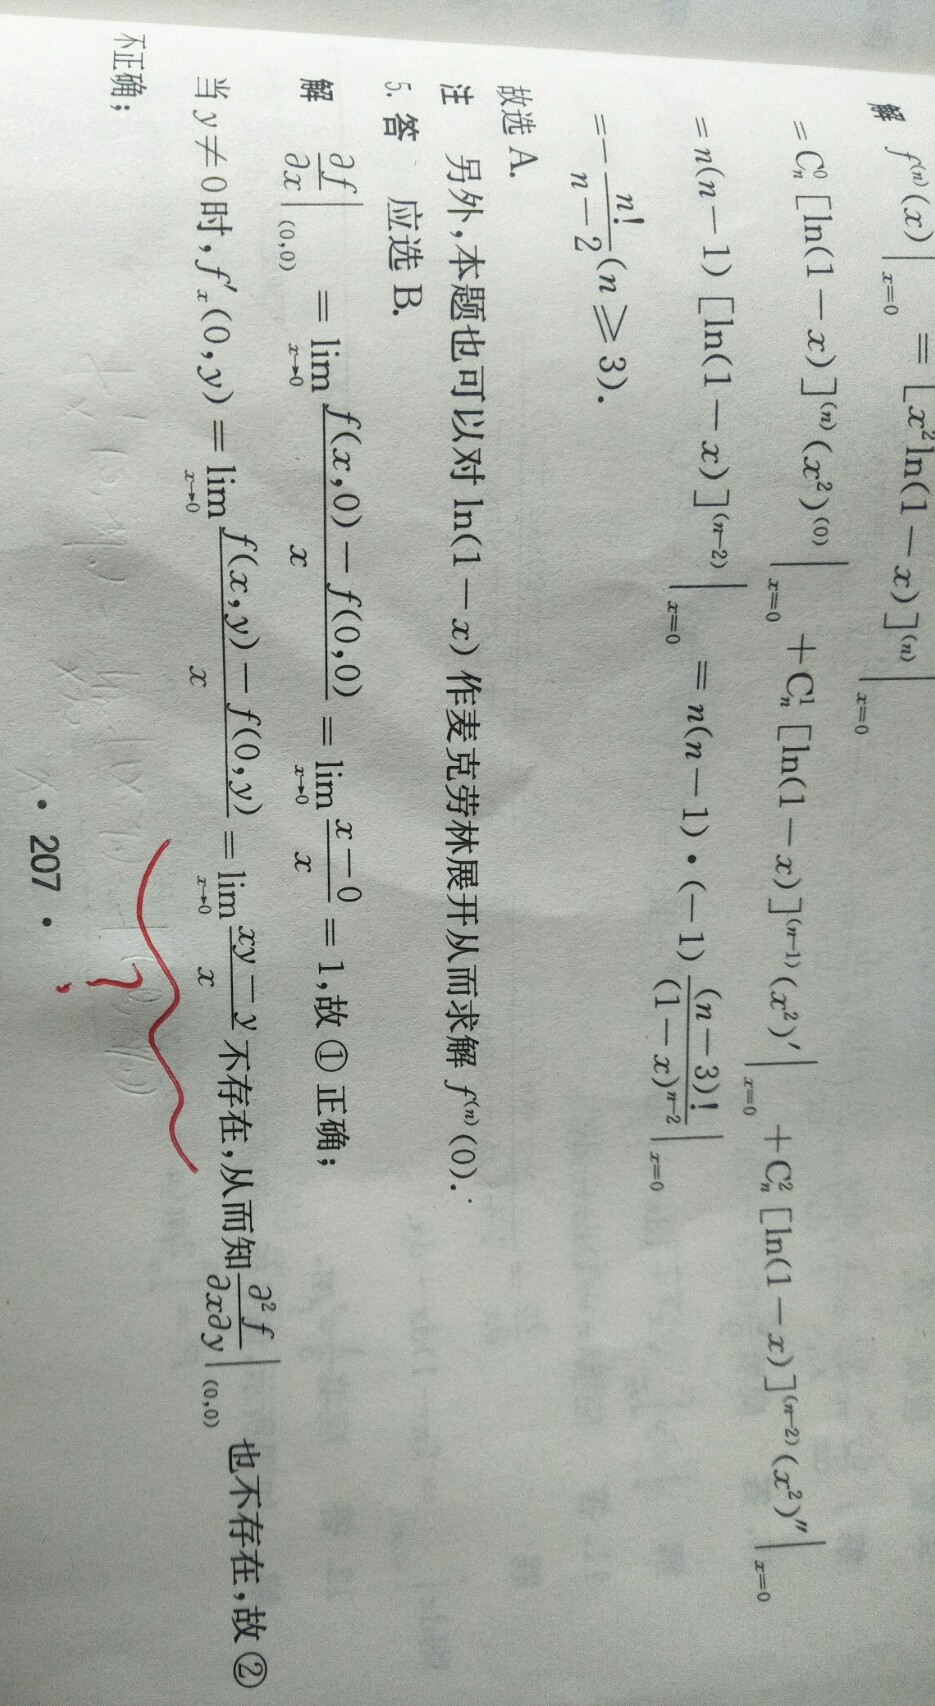 解 f⁽ⁿ⁾(x)|ₓ₌₀ = [x²ln(1-x)]⁽ⁿ⁾|ₓ₌₀
= Cₙ⁰[ln(1-x)]⁽ⁿ⁾(x²)⁽⁰⁾|ₓ₌₀ + Cₙ¹[ln(1-x)]⁽ⁿ⁻¹⁾(x²)′|ₓ₌₀ + Cₙ²[ln(1-x)]⁽ⁿ⁻²⁾(x²)″|ₓ₌₀
= n(n-1)[ln(1-x)]⁽ⁿ⁻²⁾|ₓ₌₀ = n(n-1)·(-1)(n-3)!/(1-x)ⁿ⁻²|ₓ₌₀
= -n!/(n-2)(n≥3).
故选 A.
注 另外,本题也可以对 ln(1-x) 作麦克劳林展开从而求解 f⁽ⁿ⁾(0).
5. 答 应选 B.
解 ∂f/∂x|(0,0) = lim x→0 (f(x,0)-f(0,0))/x = lim x→0 (x-0)/x = 1,故①正确;
当 y≠0 时,f′ₓ(0,y) = lim x→0 (f(x,y)-f(0,y))/x = lim x→0 (xy-y)/x 不存在,从而知 ∂²f/∂x∂y|(0,0) 也不存在,故②
不正确;
?
· 207 ·